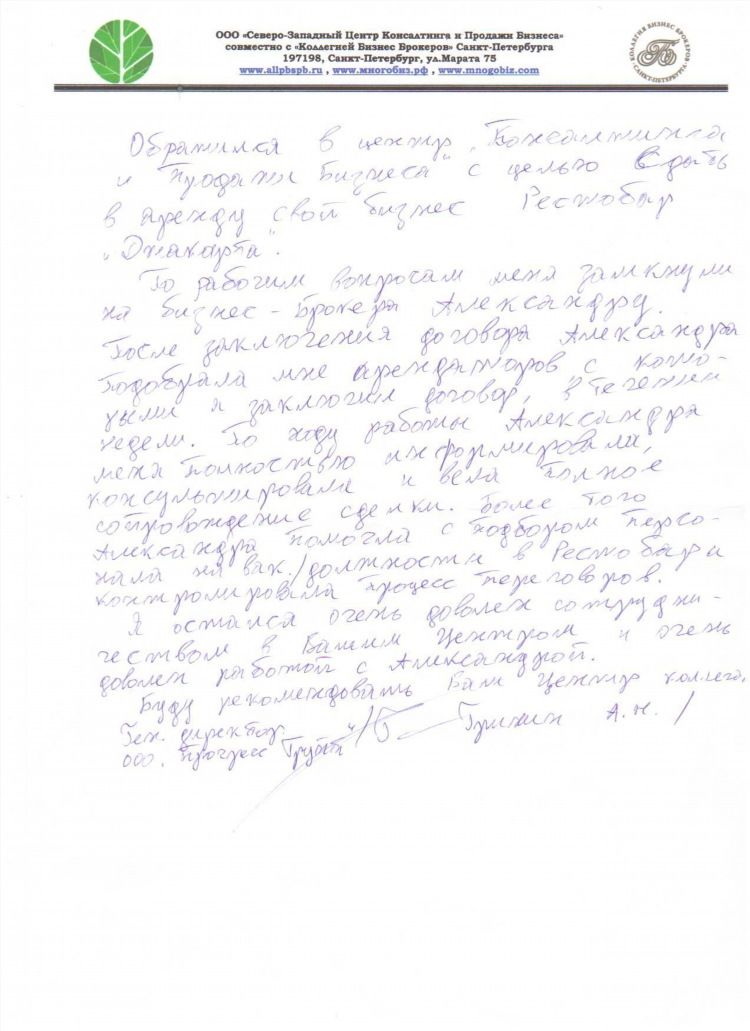 ООО «Северо-Западный Центр Консалтинга и Продажи Бизнеса»
совместно с «Коллегией Бизнес Брокеров» Санкт-Петербурга
197198, Санкт-Петербург, ул.Марата 75
www.allpbspb.ru , www.многобиз.рф , www.mnogobiz.com
КОЛЛЕГИЯ БИЗНЕС БРОКЕРОВ
•САНКТ-ПЕТЕРБУРГА•
Обратился в центр „Консалтинга
и Продажи Бизнеса" с целью Сдать
в аренду свой бизнес Рестобар
„Джакарта".
По рабочим вопросам меня замкнули
на бизнес-брокера Александру.
После заключения договора Александра
подобрала мне арендаторов с кото-
рыми я заключил договор, в течении
недели. По ходу работы Александра
меня полностью информировала,
консультировала и вела полное
сопровождение сделки. Более того
Александра помогла с подбором персо-
нала на вак./должности в Рестобар и
контролировала процесс переговоров.
Я остался очень доволен сотрудни-
чеством с Вашим Центром и очень
доволен работой с Александрой.
Буду рекомендовать Ваш Центр коллега.
Ген. директор
ООО „Прогресс Групп" / Гришин А.Н. /